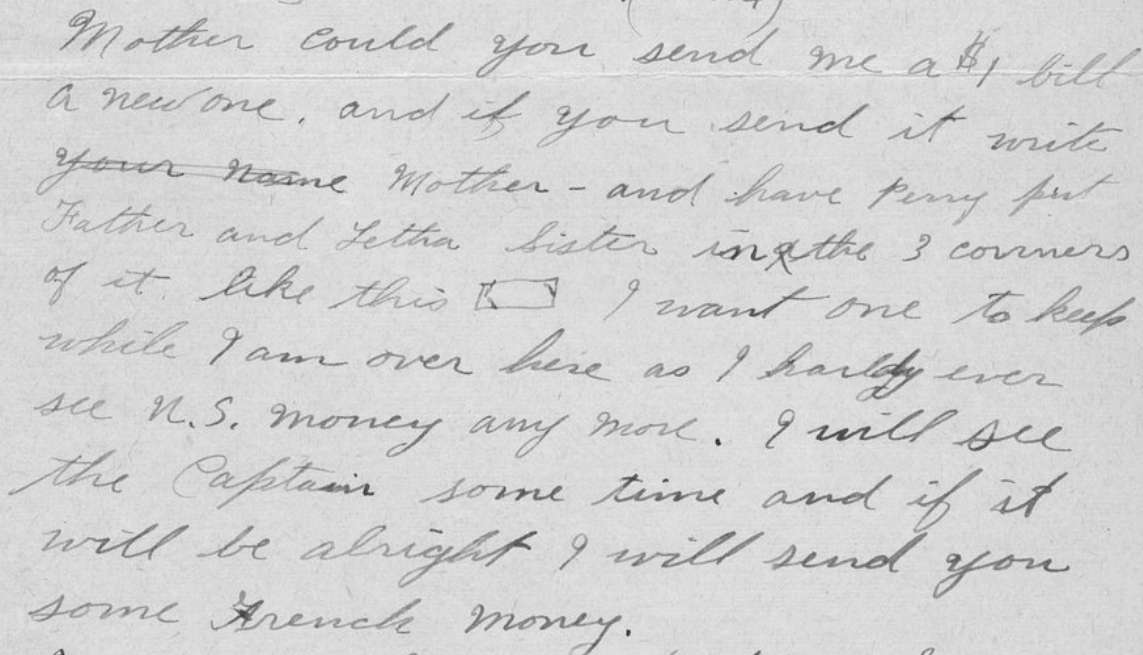 Mother could you send me a $1 bill
a new one. and if you send it write
your name Mother - and have Perry put
Father and Letha Sister in the 3 corners
of it like this I want one to keep
while I am over here as I hardly ever
see U.S. money any more. I will see
the Captain some time and if it
will be alright I will send you
some French money.